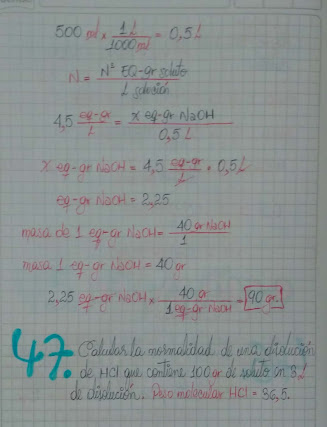 500 ml x 1L / 1000 ml = 0,5 L
N = Nº EQ-gr soluto / L solución
4,5 eq-gr / L = x eq-gr NaOH / 0,5 L
x eq-gr NaOH = 4,5 eq-gr / L • 0,5 L
eq-gr NaOH = 2,25
masa de 1 eq-gr NaOH = 40 gr NaOH / 1
masa 1 eq-gr NaOH = 40 gr
2,25 eq-gr NaOH x 40 gr / 1 eq-gr NaOH = 90 gr.
47. Calcular la normalidad de una disolución
de HCl que contiene 100 gr de soluto en 3L
de disolución. Peso molecular HCl = 36,5.